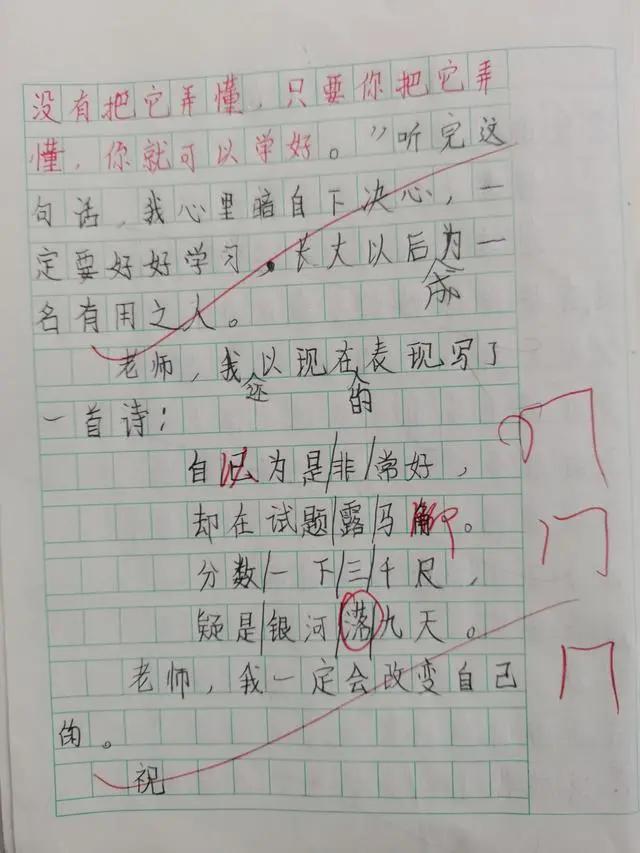 没有把它弄懂，只要你把它弄
懂，你就可以学好。”听完这
句话，我心里暗自下决心，一
定要好好学习，长大以后成为一
名有用之人。
老师，我还以现在的表现写了
一首诗：
自以为是非常好，
却在试题露马脚。
分数一下三千尺，
疑是银河落九天。
老师，我一定会改变自己
的。
祝